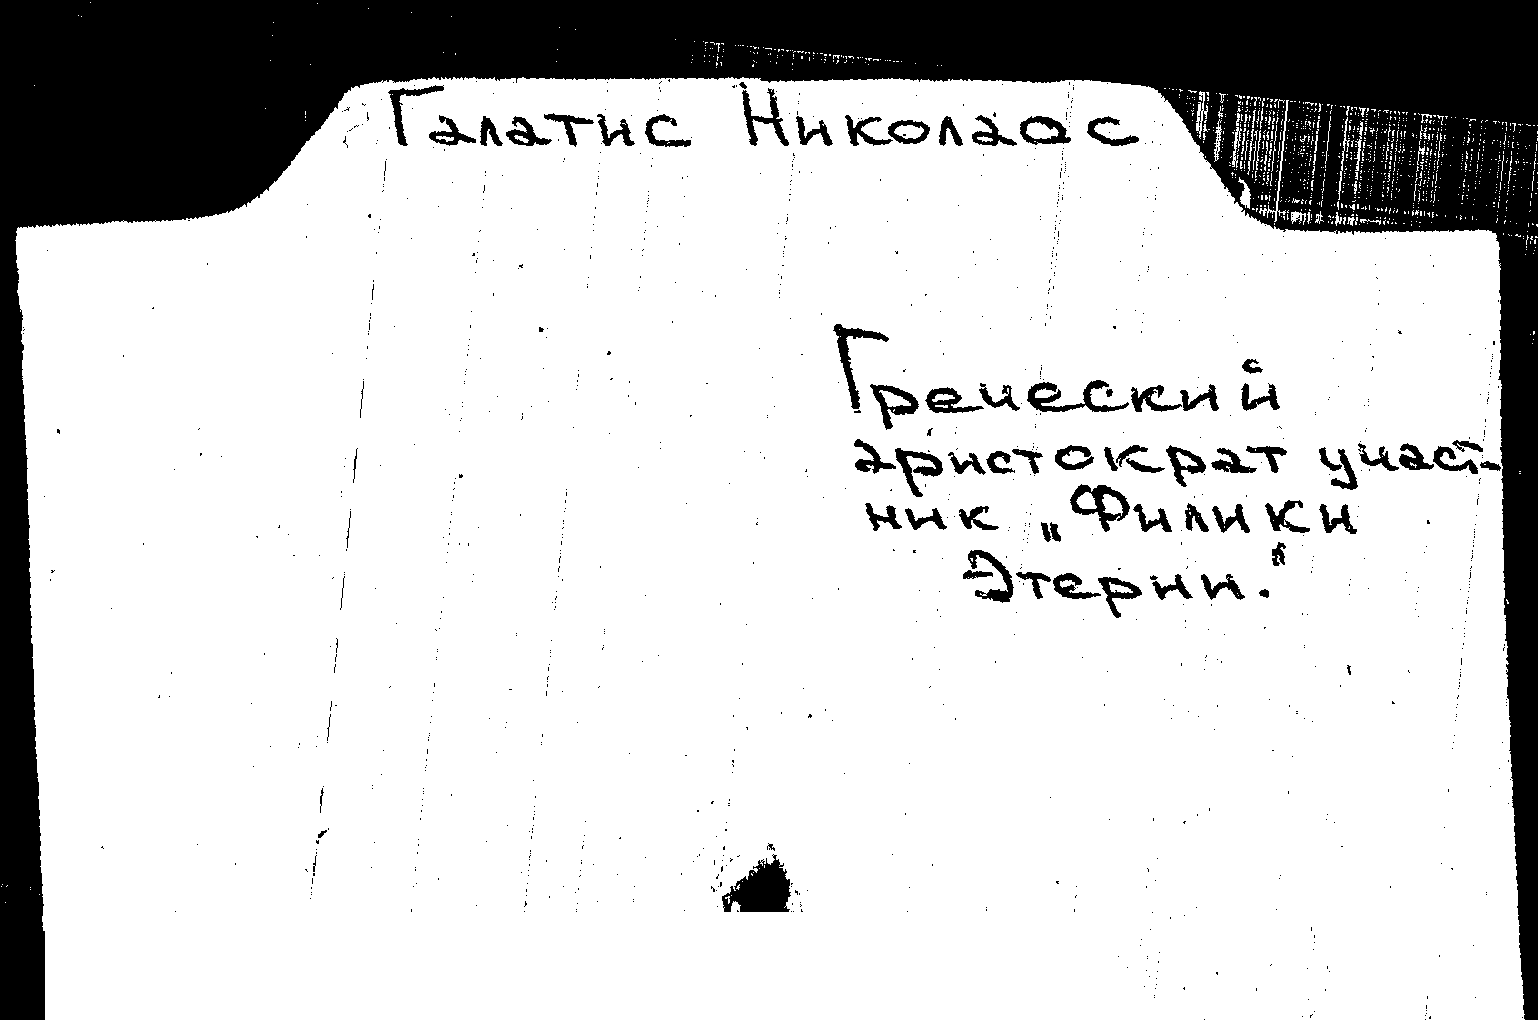 Галатис Николаос
Греческий
аристократ участ-
ник „Филики
Этерии.“